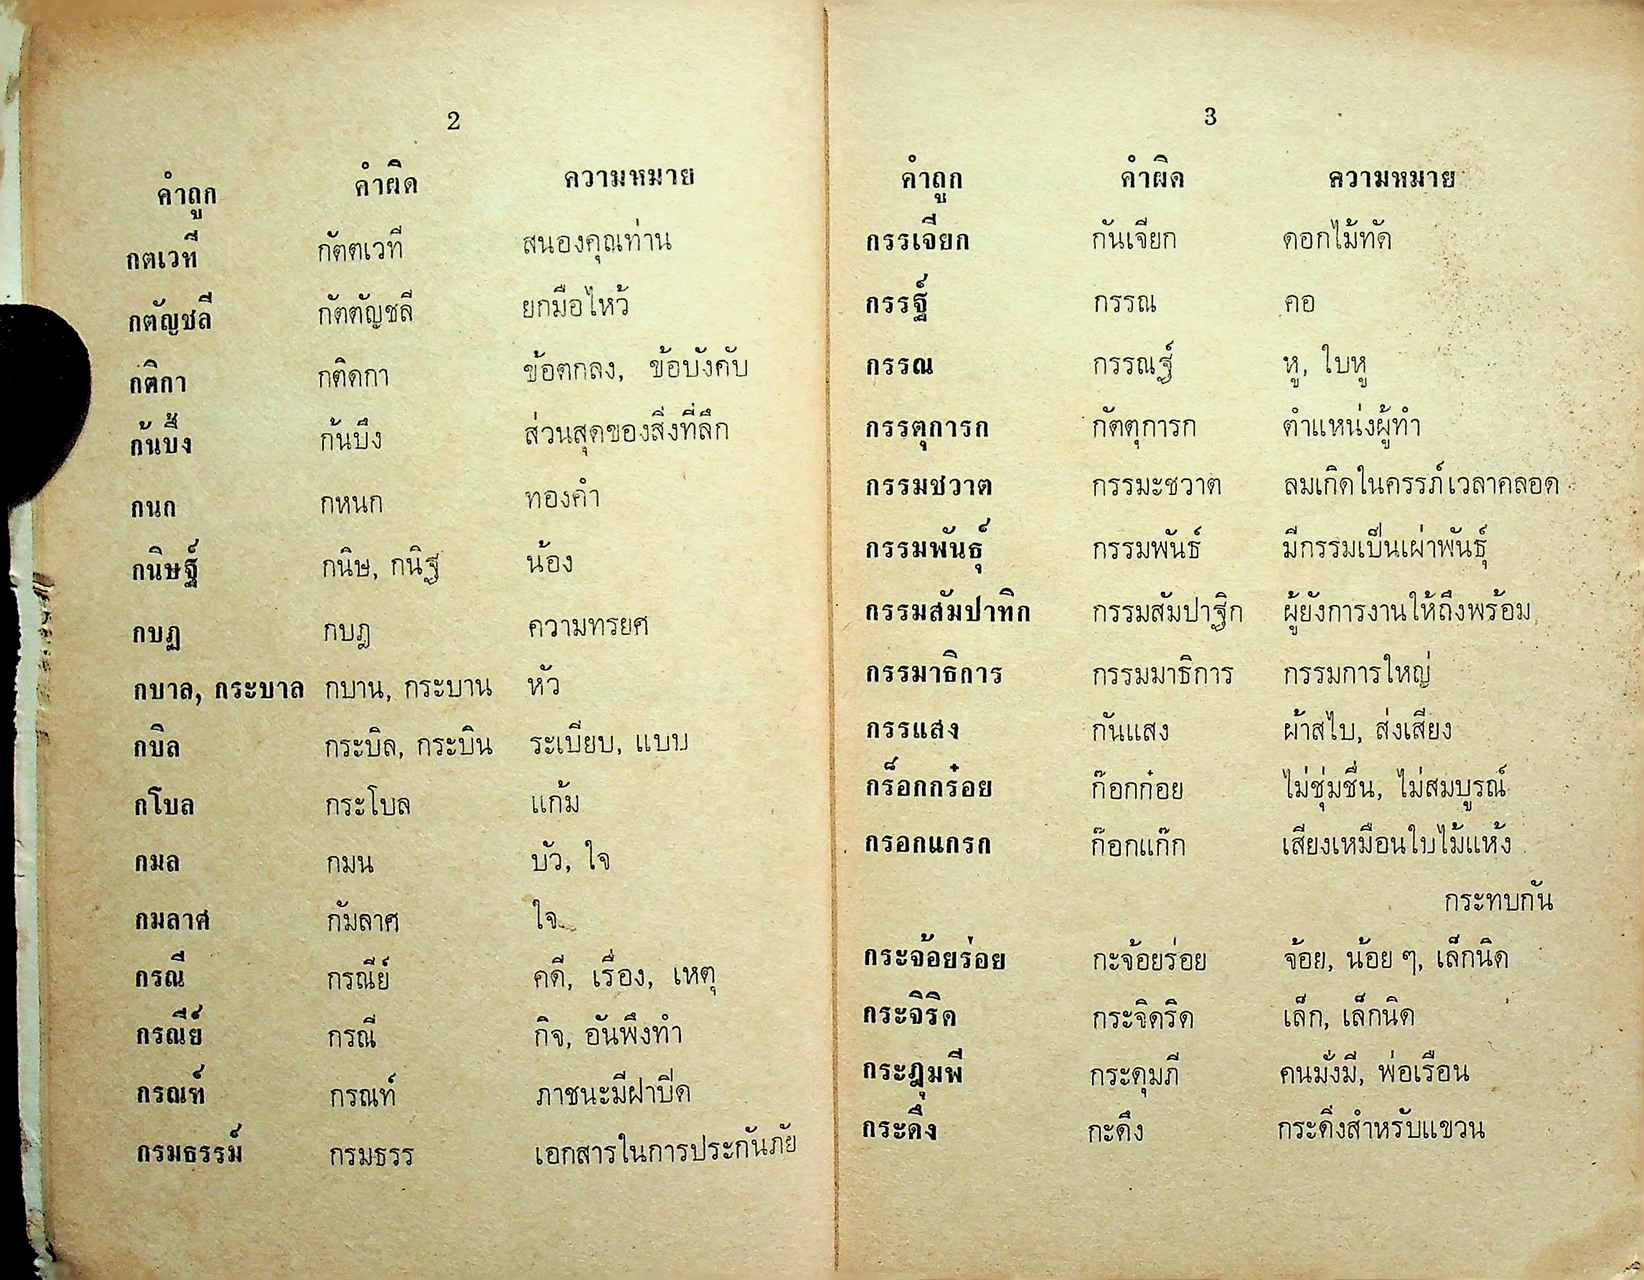 2
คำถูก คำผิด ความหมาย
กตเวที กัตตเวที สนองคุณท่าน
กตัญชลี กัตตัญชลี ยกมือไหว้
กติกา กติดกา ข้อตกลง, ข้อบังคับ
ก้นบึ้ง ก้นบึง ส่วนสุดของสิ่งที่ลึก
กนก กหนก ทองคำ
กนิษฐ์ กนิษ, กนิฐ น้อง
กบฏ กบฎ ความทรยศ
กบาล, กระบาล กบาน, กระบาน หัว
กบิล กระบิล, กระบิน ระเบียบ, แบบ
กโบล กระโบล แก้ม
กมล กมน บัว, ใจ
กมลาศ กัมลาศ ใจ
กรณี กรณีย์ คดี, เรื่อง, เหตุ
กรณีย์ กรณี กิจ, อันพึงทำ
กรณฑ์ กรณท์ ภาชนะมีฝาปิด
กรมธรรม์ กรมธรร เอกสารในการประกันภัย
3
คำถูก คำผิด ความหมาย
กรรเจียก กันเจียก ดอกไม้ทัด
กรรฐ์ กรรณ คอ
กรรณ กรรณฐ์ หู, ใบหู
กรรตุการก กัตตุการก ตำแหน่งผู้ทำ
กรรมชวาต กรรมะชวาต ลมเกิดในครรภ์เวลาคลอด
กรรมพันธุ์ กรรมพันธ์ มีกรรมเป็นเผ่าพันธุ์
กรรมสัมปาทิก กรรมสัมปาฐิก ผู้ยังการงานให้ถึงพร้อม
กรรมาธิการ กรรมมาธิการ กรรมการใหญ่
กรรแสง กันแสง ผ้าสไบ, ส่งเสียง
กร็อกกร๋อย ก๊อกก๋อย ไม่ชุ่มชื่น, ไม่สมบูรณ์
กรอกแกรก ก๊อกแก๊ก เสียงเหมือนใบไม้แห้ง
กระทบกัน
กระจ้อยร่อย กะจ้อยร่อย จ้อย, น้อย ๆ, เล็กนิด
กระจิริด กระจิดริด เล็ก, เล็กนิด
กระฎุมพี กระดุมภี คนมั่งมี, พ่อเรือน
กระดึง กะดึง กระดิ่งสำหรับแขวน